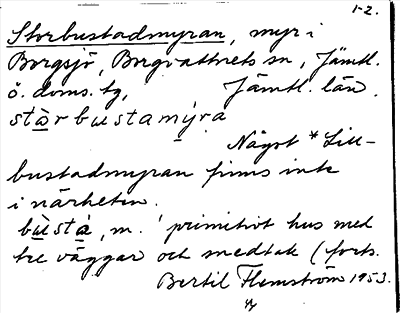 1-2.
Storbustadmyran, myr i
Borgsjö, Borgvattnets sn, Jämtl.
ö. doms. tg, Jämtl. län.
stàrbustamýra
Något *Lill-
bustadmyran finns inte
i närheten.
bùstá, m. 'primitivt hus med
tre väggar och snedtak (forts.
Bertil Flemström 1953.